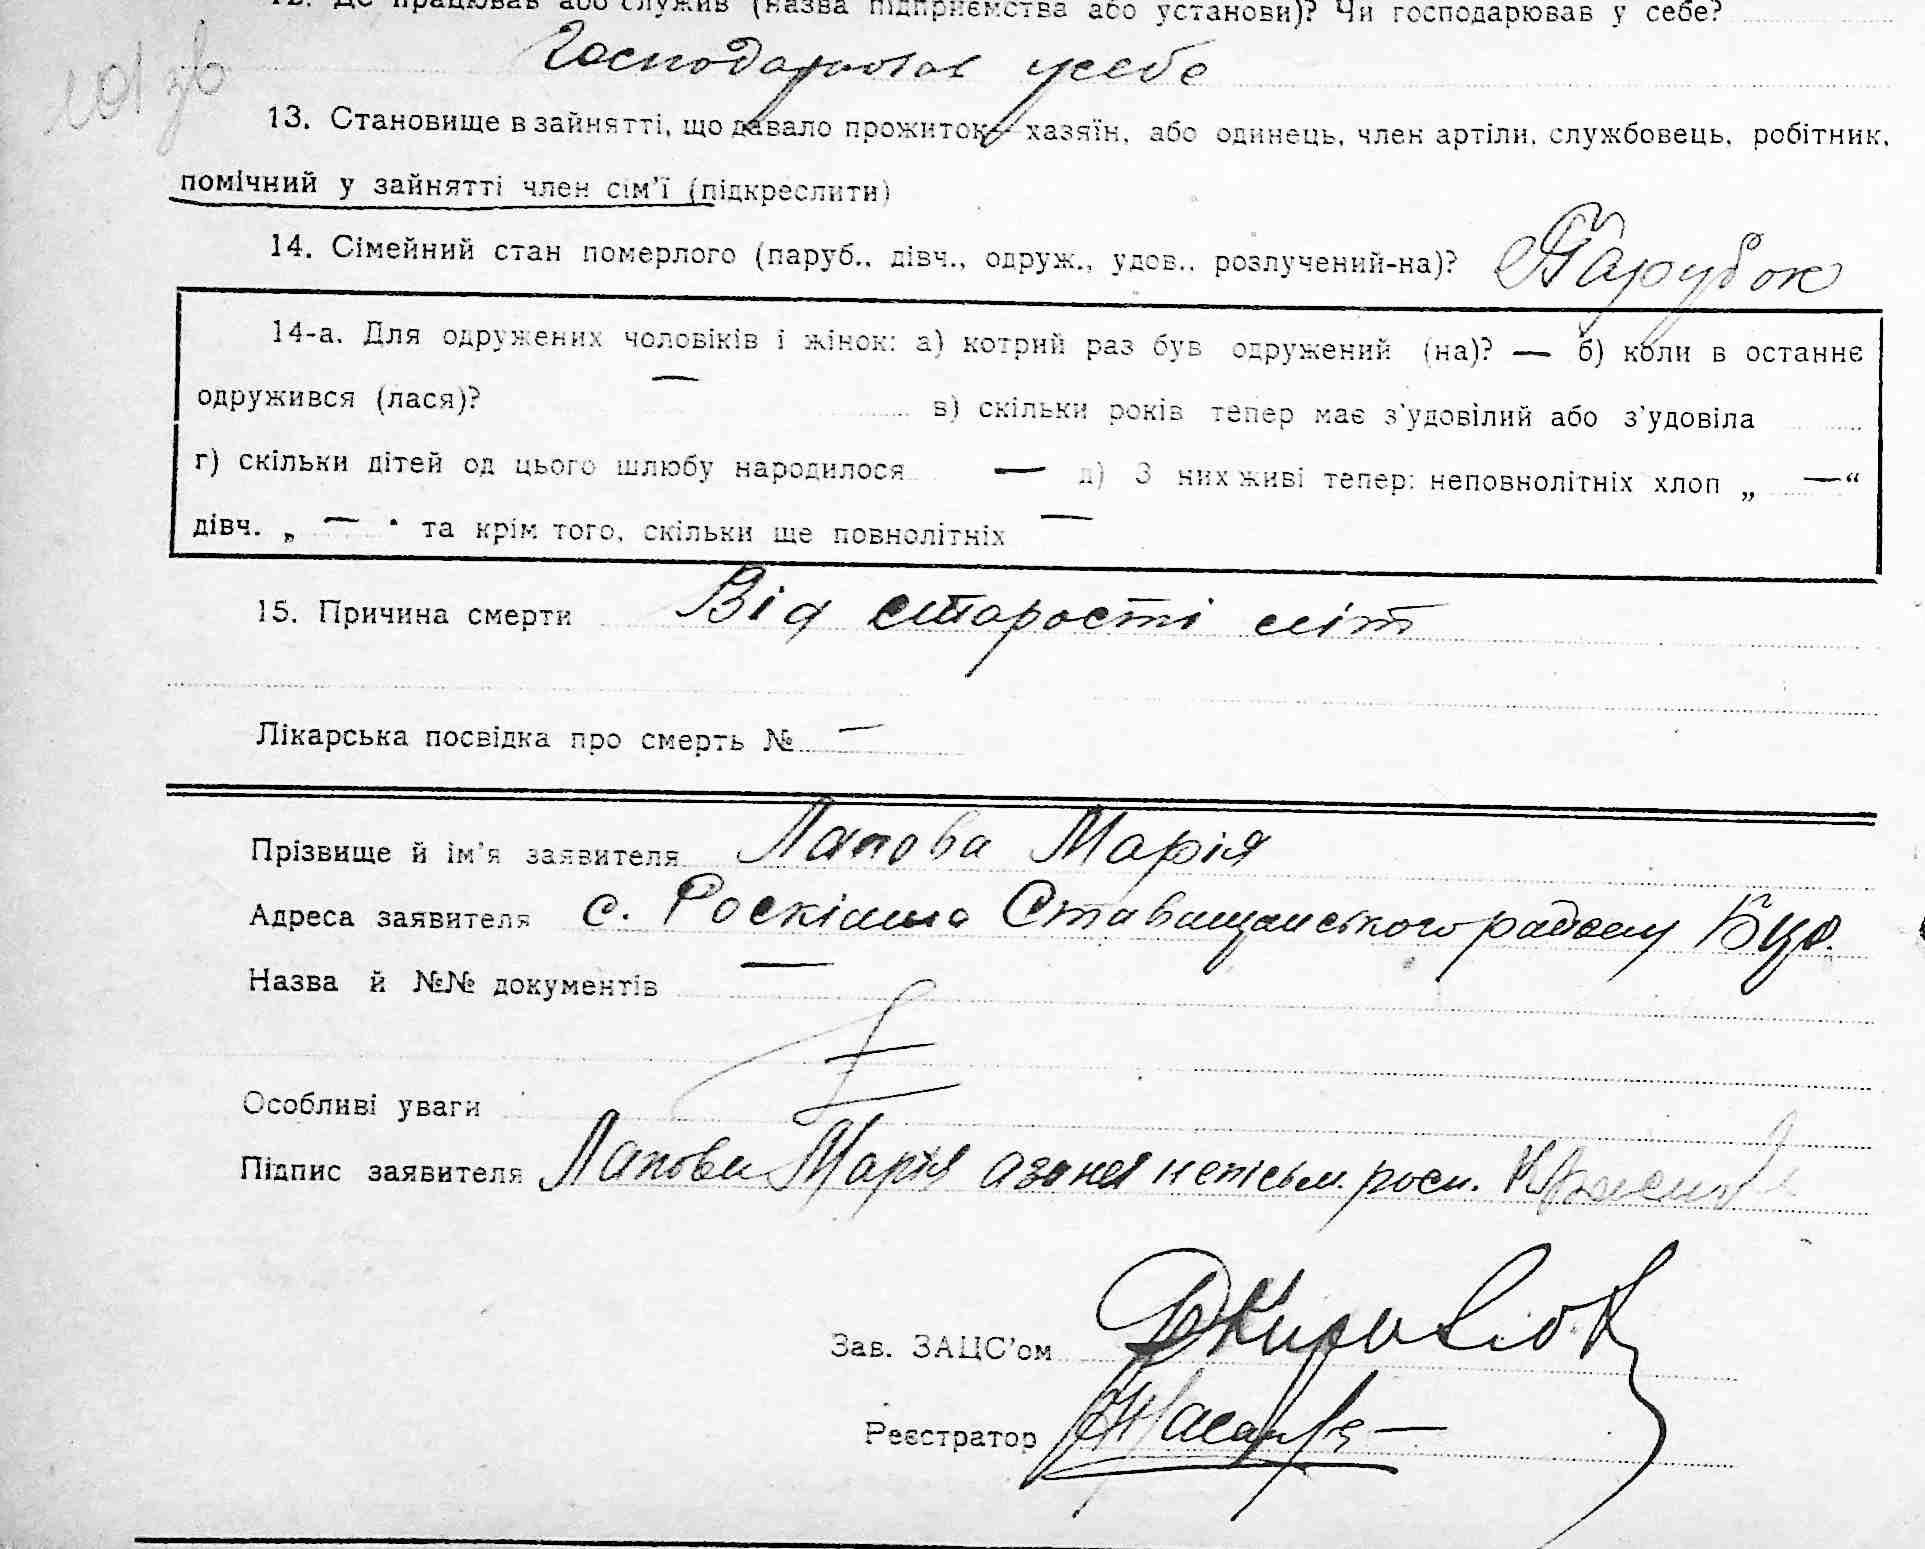 12. Де працював або служив (назва підприємства або установи)? Чи господарював у себе?
Господарював у себе
13. Становище в зайнятті, що давало прожиток — хазяїн, або одинець, член артіли, службовець, робітник,
помічний у зайнятті член сім'ї (підкреслити)
14. Сімейний стан померлого (паруб., дівч., одруж., удов., розлучений-на)? Парубок
14-а. Для одружених чоловіків і жінок: а) котрий раз був одружений (на)? — б) коли в останнє
одружився (лася)? — в) скільки років тепер має з'удовілий або з'удовіла
г) скільки дітей од цього шлюбу народилося — д) З них живі тепер: неповнолітніх хлоп „ — “
дівч. „ — “ та крім того, скільки ще повнолітніх —
15. Причина смерти Від старості літ
Лікарська посвідка про смерть № —
Прізвище й ім'я заявителя Лапова Марія
Адреса заявителя с. Роскішна Ставищанського району
Назва й №№ документів —
Особливі уваги
Підпис заявителя Лапова Марія а за неї непісьм. росп.
Зав. ЗАЦС'ом
Реєстратор